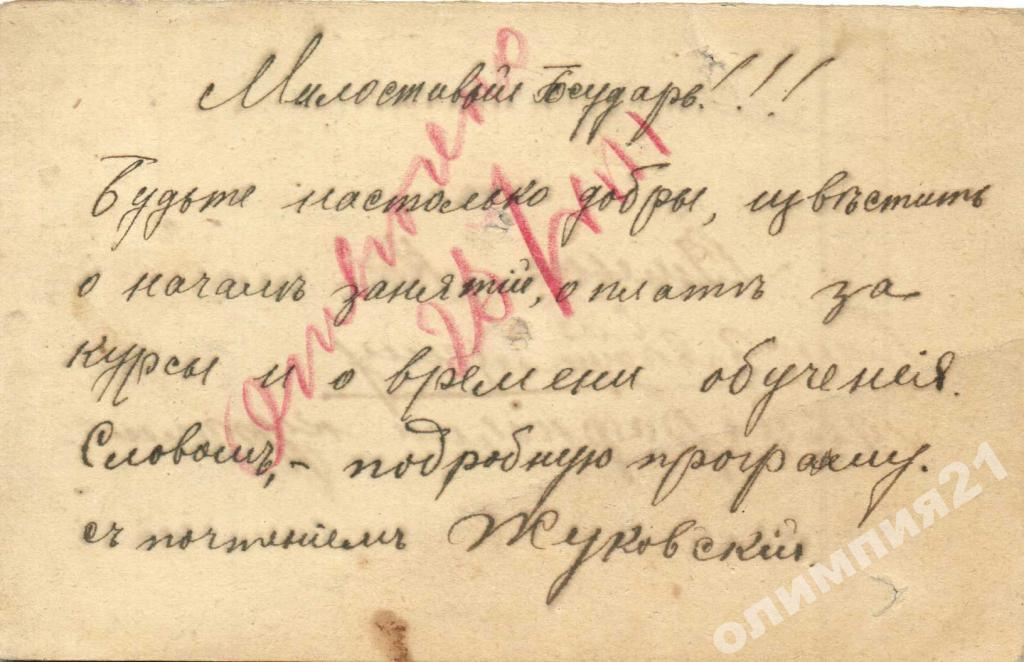 Милостивый Государь!!!
Будьте настолько добры, извѣстить
о началѣ занятій, о платѣ за
курсы и о времени обученія.
Словомъ, - подробную програму.
съ почтеніемъ Жуковскій.
Отвѣчено
26/
олимпия21